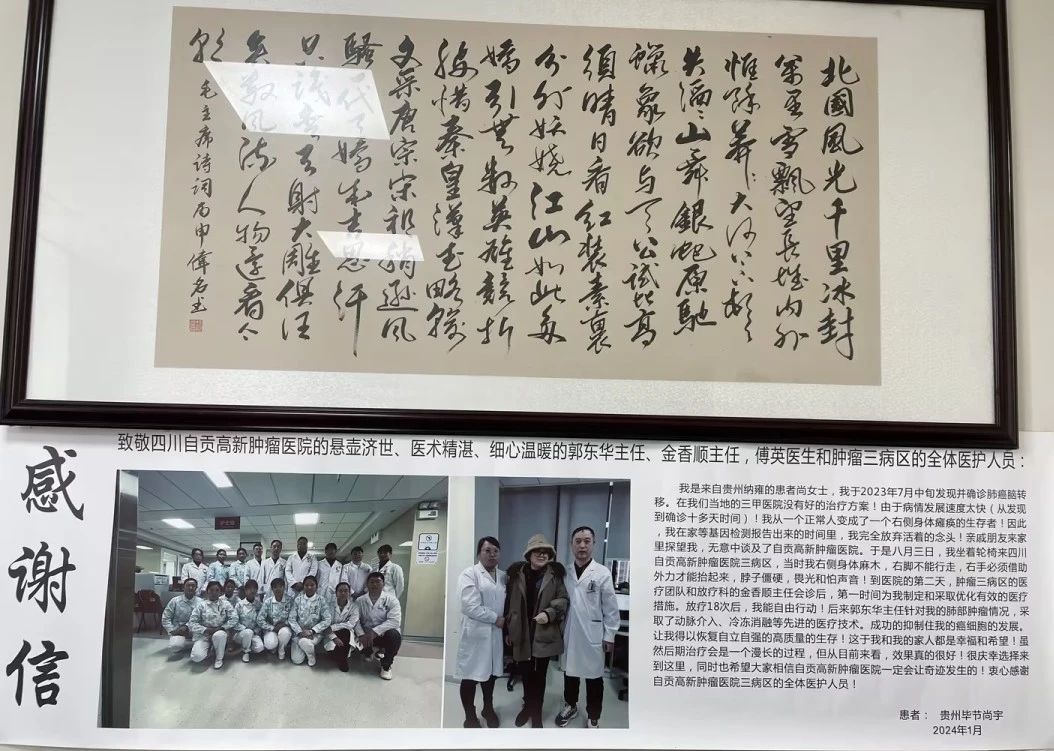 北國風光千里冰封
萬里雪飄望長城内外
惟餘莽々大河上下頓
失滔々山舞銀蛇原馳
蠟象欲与天公試比高
須晴日看红装素裹
分外妖娆江山如此多
嬌引無數英雄競折
腰惜秦皇漢武略輸
文采唐宗宋祖稍遜風
騷一代天驕成吉思汗
只識彎弓射大雕俱往
矣數風流人物還看今
朝
毛主席詩詞丙申偉名书
感谢信
致敬四川自贡高新肿瘤医院的悬壶济世、医术精湛、细心温暖的郭东华主任、金香顺主任，傅英医生和肿瘤三病区的全体医护人员：
护士站
我是来自贵州纳雍的患者尚女士，我于2023年7月中旬发现并确诊肺癌脑转
移。在我们当地的三甲医院没有好的治疗方案！由于病情发展速度太快（从发现
到确诊十多天时间）！我从一个正常人变成了一个右侧身体瘫痪的生存者！因此
，我在家等基因检测报告出来的时间里，我完全放弃活着的念头！亲戚朋友来家
里探望我，无意中谈及了自贡高新肿瘤医院。于是八月三日，我坐着轮椅来四川
自贡高新肿瘤医院三病区，当时我右侧身体麻木，右脚不能行走，右手必须借助
外力才能抬起来，脖子僵硬，畏光和怕声音！到医院的第二天，肿瘤三病区的医
疗团队和放疗科的金香顺主任会诊后，第一时间为我制定和采取优化有效的医疗
措施。放疗18次后，我能自由行动！后来郭东华主任针对我的肺部肿瘤情况，采
取了动脉介入、冷冻消融等先进的医疗技术。成功的抑制住我的癌细胞的发展。
让我得以恢复自立自强的高质量的生存！这于我和我的家人都是幸福和希望！虽
然后期治疗会是一个漫长的过程，但从目前来看，效果真的很好！很庆幸选择来
到这里，同时也希望大家相信自贡高新肿瘤医院一定会让奇迹发生的！衷心感谢
自贡高新肿瘤医院三病区的全体医护人员！
患者： 贵州毕节尚宇
2024年1月